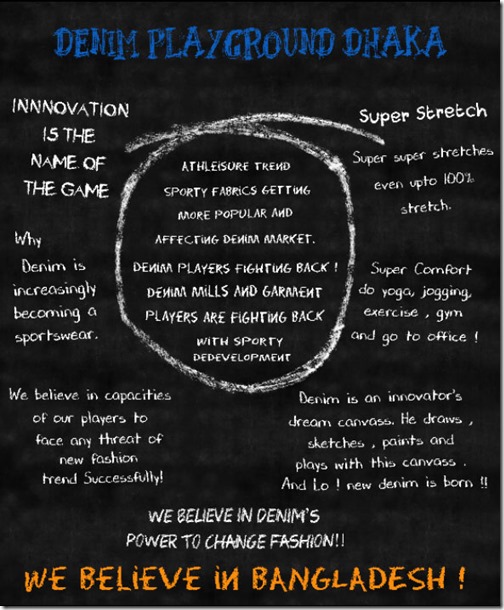 DENIM PLAYGROUND DHAKA
INNNOVATION
IS THE
NAME OF
THE GAME
Why
Denim is
increasingly
becoming a
sportswear.
We believe in capacities
of our players to
face any threat of
new fashion
trend Successfully!
ATHLEISURE TREND
SPORTY FABRICS GETTING
MORE POPULAR AND
AFFECTING DENIM MARKET.
DENIM PLAYERS FIGHTING BACK !
DENIM MILLS AND GARMENT
PLAYERS ARE FIGHTING BACK
WITH SPORTY
DEDEVELOPMENT
Super Stretch
Super super stretches
even upto 100%
stretch.
Super Comfort
do yoga, jogging,
exercise , gym
and go to office !
Denim is an innovator's
dream canvass. He draws ,
sketches , paints and
plays with this canvass .
And Lo ! new denim is born !!
WE BELIEVE IN DENIM'S
POWER TO CHANGE FASHION!!
WE BELiEVE iN BANGLADESH !